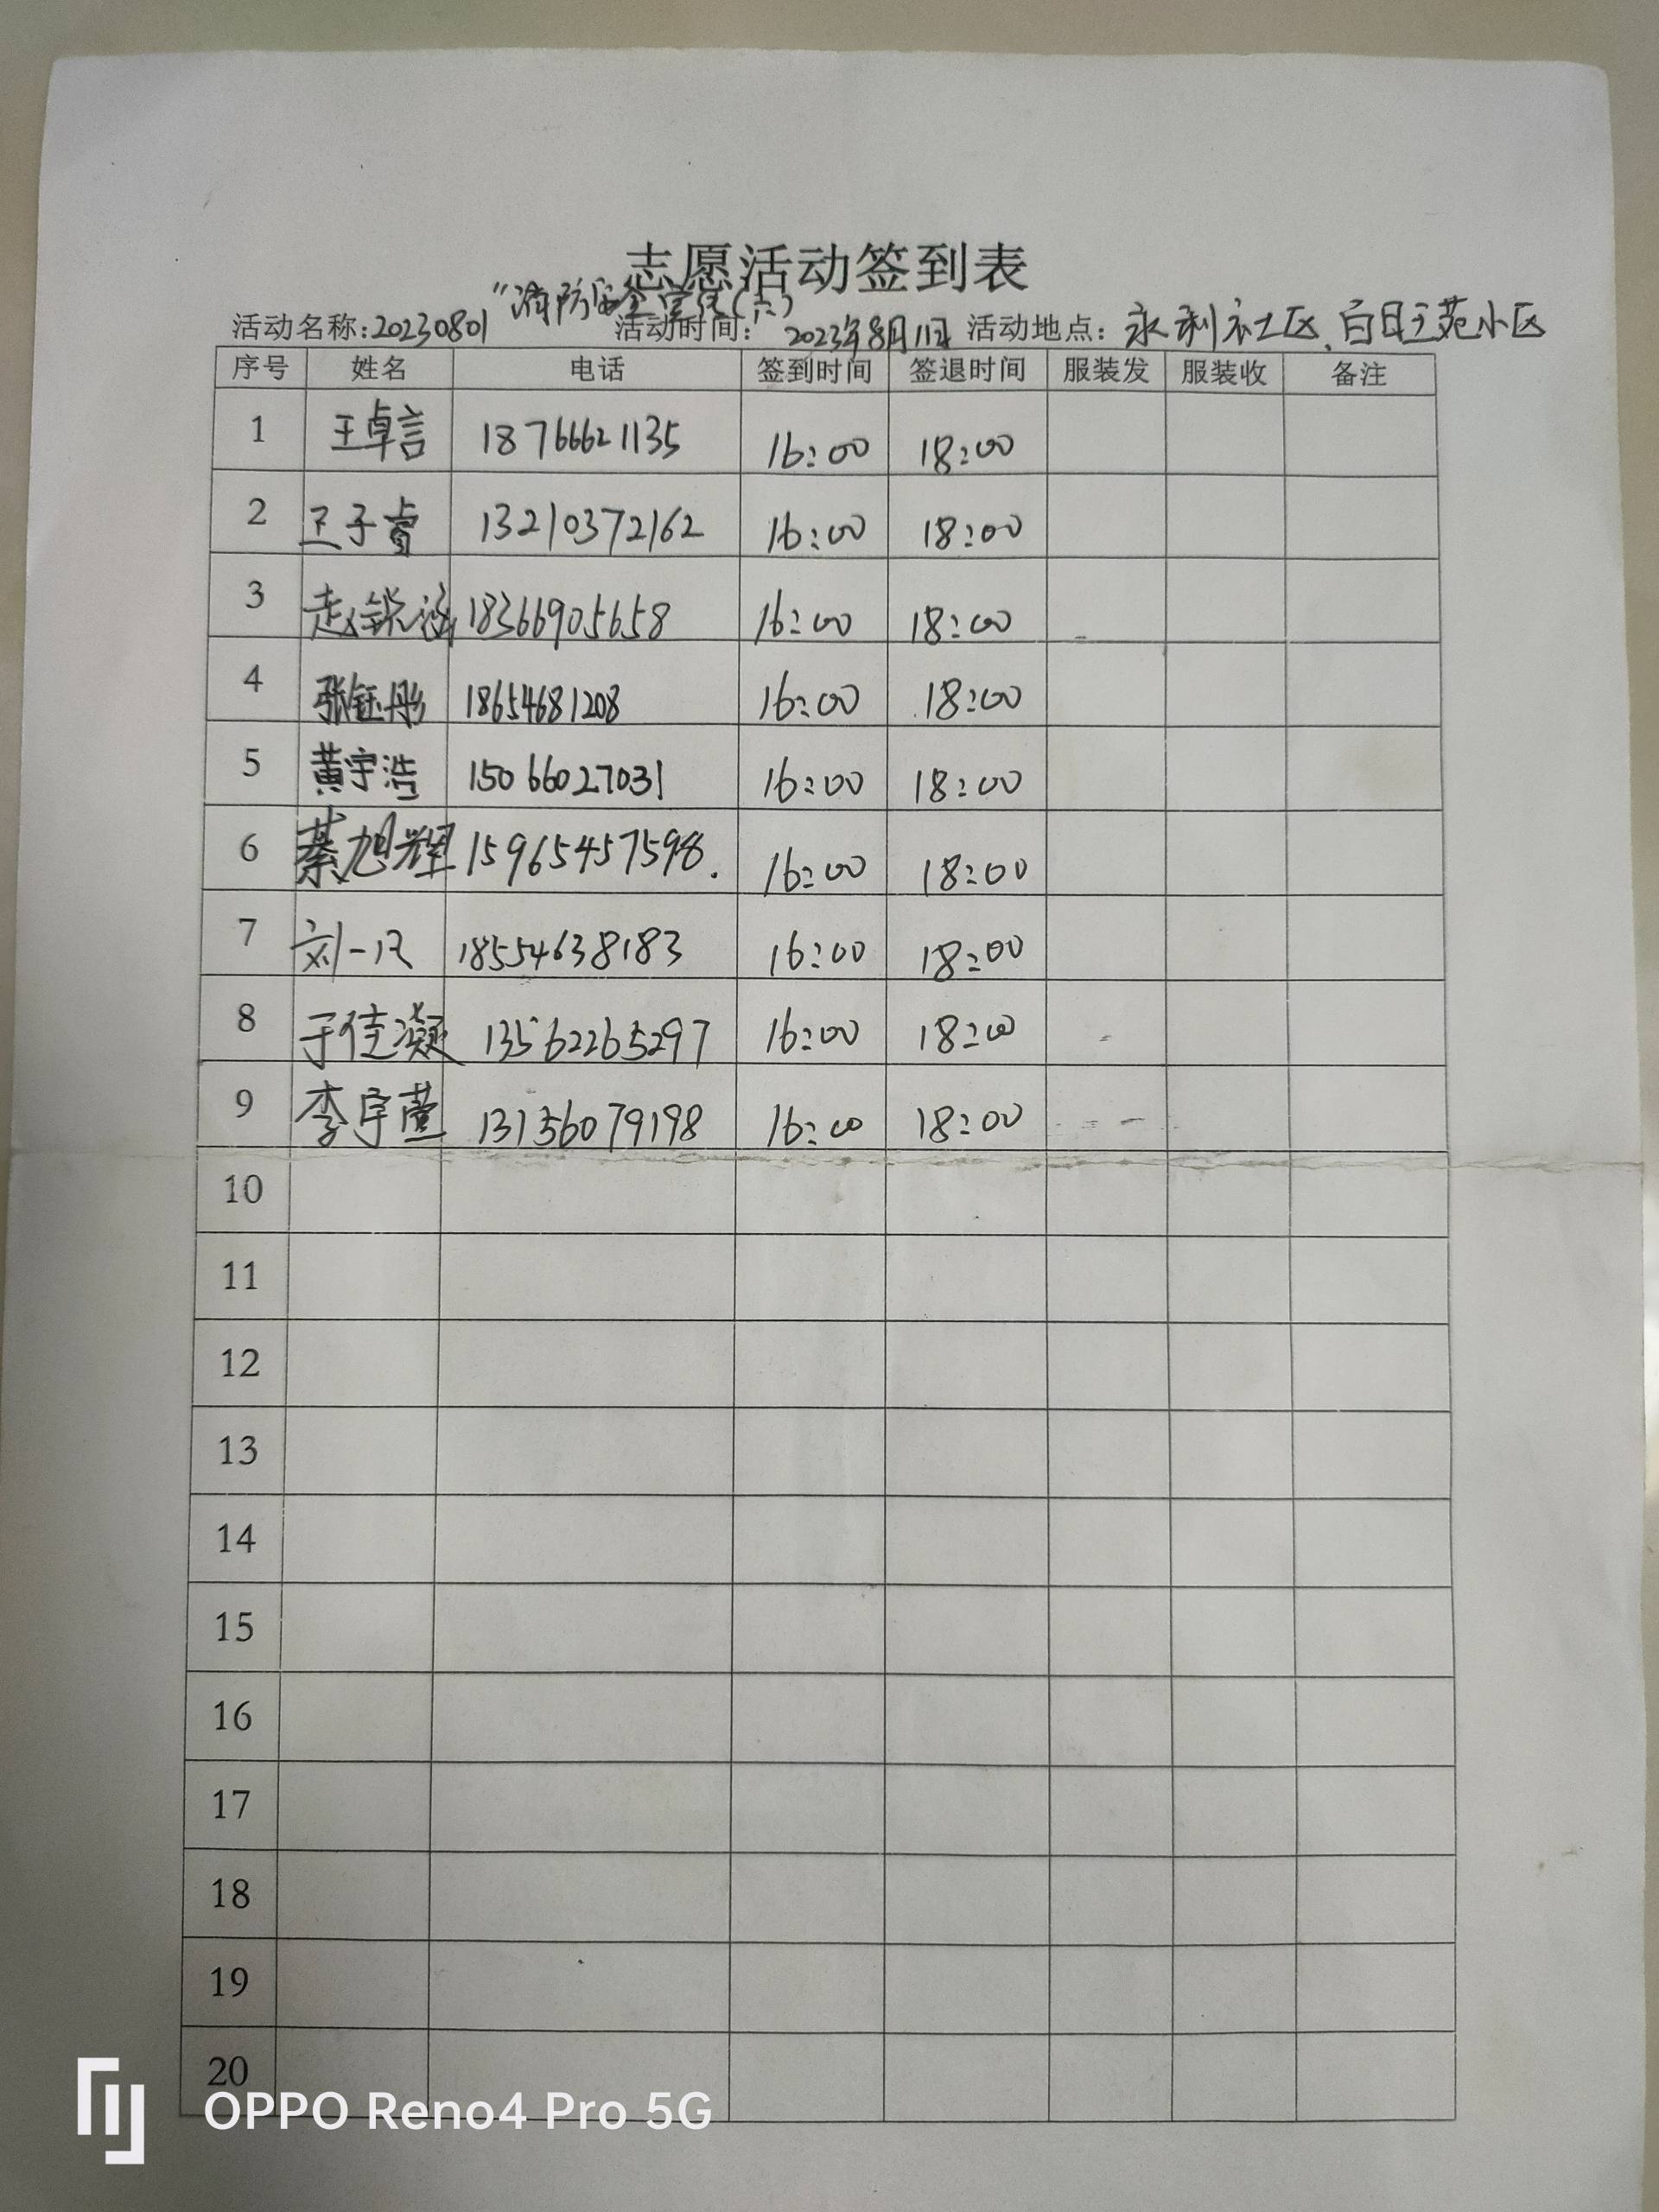 志愿活动签到表
活动名称:20230801 "消防安全宣传(六) 活动时间: 2023年8月11日 活动地点: 永利社区、
序号 姓名 电话 签到时间 签退时间 服装发 服装收 备注
1 王卓言 18766621135 16:00 18:00
2 王子睿 13210372162 16:00 18:00
3 赵锐涵 18366905658 16:00 18:00
4 张钰彤 18654681208 16:00 18:00
5 黄宇浩 15066027031 16:00 18:00
6 綦旭辉 15965457598. 16:00 18:00
7 刘一 18554638183 16:00 18:00
8 于佳凝 13562265297 16:00 18:00
9 李宇萱 13156079198 16:00 18:00
10
11
12
13
14
15
16
17
18
19
20
OPPO Reno4 Pro 5G